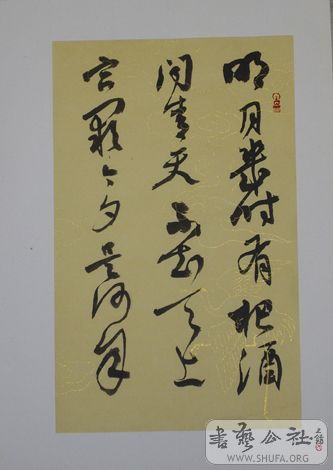 明月幾時有把酒
问青天不知天上
宫阙今夕是何年
書藝公社
WWW.SHUFA.ORG